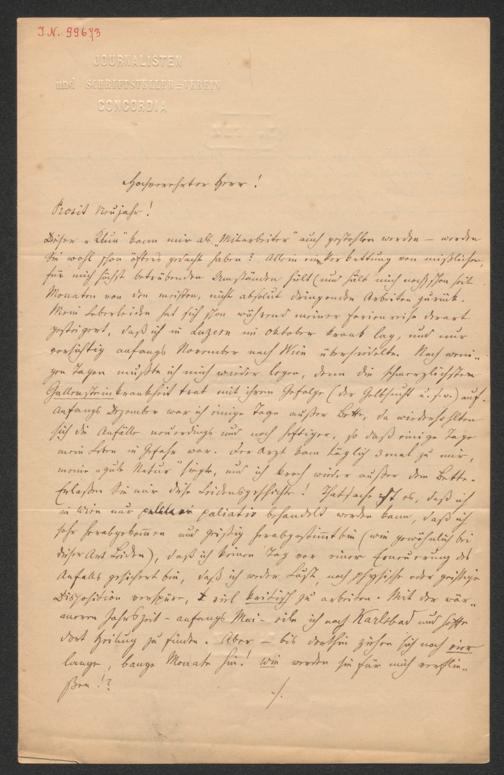 J.N. 99673
JOURNALISTEN
und SCHRIFTSTELLER-VEREIN
CONCORDIA
Hochverehrter Herr!
Prosit Neujahr!
Dieser kann mir als "Mitarbeiter" auch gestohlen werden – werden
Sie wohl schon öfters gedacht haben! Allein eine Verkettung von mißlichen,
für mich höchst betrübenden Umständen hält (und hält mich noch) schon seit
Monaten von den meisten, nicht absolut dringenden Arbeiten zurück.
Mein Leberleiden hat sich schon während meiner Ferienreise derart
gesteigert, daß ich in Luzern im Oktober krank lag, und nur
vorsichtig anfangs November nach Wien übersiedelte. Nach weni-
gen Tagen mußte ich mich wieder legen, denn die schmerzlichsten
Gallensteinkrankheit trat mit ihrem Gefolge (der Gelbsucht u.s.w.) auf.
Anfangs Dezember war ich einige Tage außer Bette, da wiederholten
sich die Anfälle neuerdings und noch heftiger, so daß einige Tage
mein Leben in Gefahr war. Der Arzt kam täglich 3 mal zu mir,
meine "gute Natur" siegte, und ich kroch wieder aus dem Bette.
Erlassen Sie mir diese Leidensgeschichte! Thatsache ist es, daß ich
in Wien nur palliativ behandelt werden kann, daß ich
sehr herabgekommen und geistig herabgestimmt bin (wie gewöhnlich bei
dieser Art Leiden), daß ich keinen Tag vor einer Erneuerung des
Anfalls gesichert bin, daß ich weder Lust, noch physische oder geistige
Disposition verspüre, viel zu arbeiten. Mit der wär-
meren Jahreszeit – anfangs Mai – eile ich nach Karlsbad und hoffe
dort Heilung zu finden. Aber – bis dorthin ziehen sich noch vier
lange, bange Monate hin! Wie werden sie für mich verflie-
ßen!?
./.